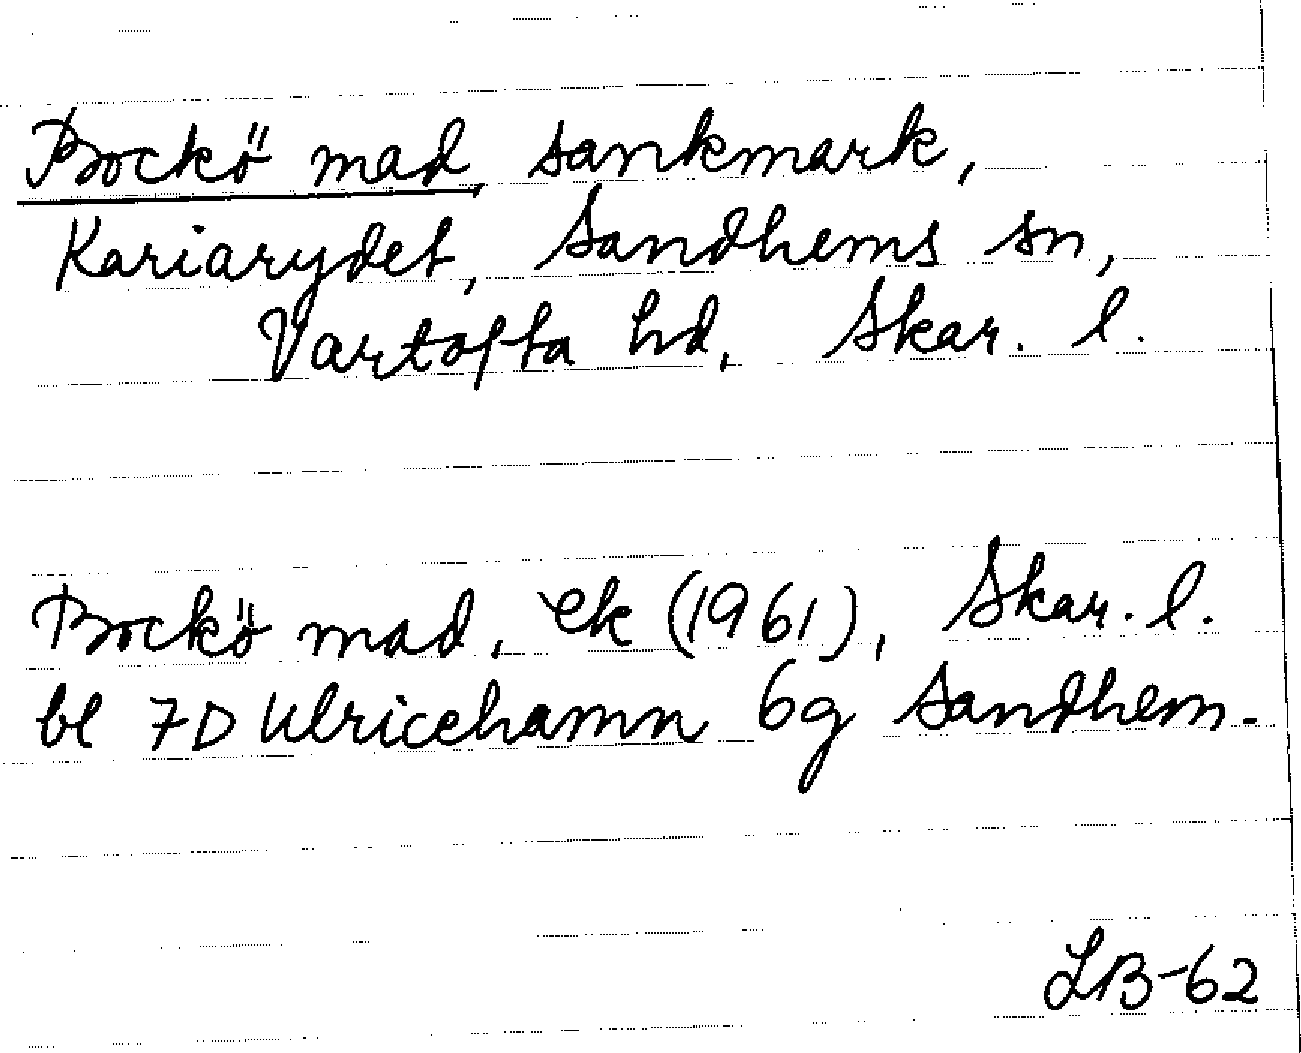 Bockö mad, sankmark,
Kariarydet, Sandhems sn,
Vartofta hd, Skar. l.
Bockö mad, ek (1961), Skar. l.
bl 7D Ulricehamn 6g Sandhem.
LB-62